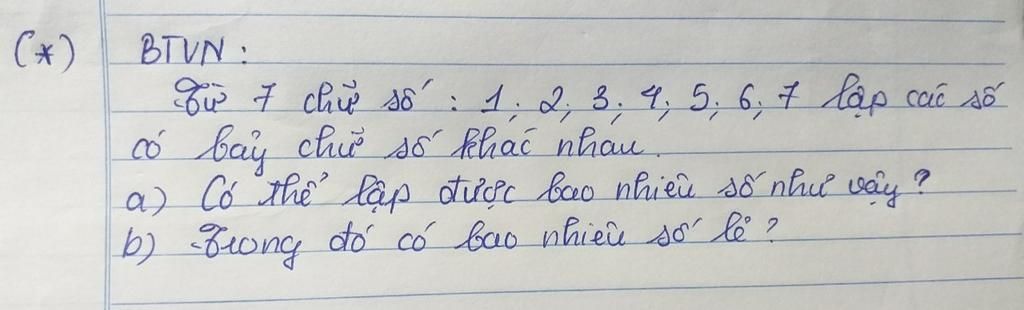 (*) BTVN:
Từ 7 chữ số: 1; 2; 3; 4; 5; 6; 7 lập các số
có bảy chữ số khác nhau.
a) Có thể lập được bao nhiêu số như vậy?
b) Trong đó có bao nhiêu số lẻ?